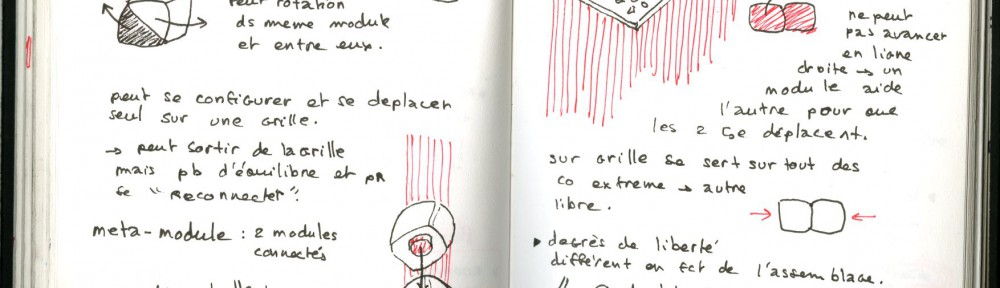 peut rotation
ds meme module
et entre eux.
peut se configurer et se deplacer
seul sur une grille.
→ peut sortir de la grille
mais pb d'équilibre et pr
se "reconnecter".
meta-module : 2 modules
connectés
ne peut
pas avancer
en ligne
droite → un
module aide
l'autre pour que
les 2 se déplacent.
sur grille se sert surtout des
co extreme → autre
libre.
▸ degrès de liberté
différent en fct de l'assemblage.